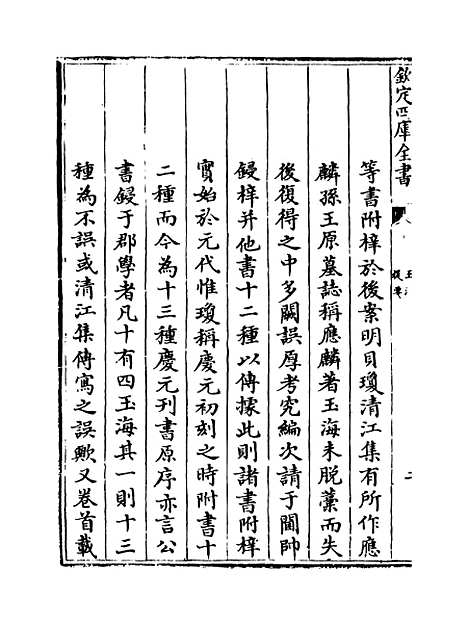 欽定四庫全書
玉海
提要
二
等書附梓於後案明貝瓊清江集有所作應
麟孫王原墓誌稱應麟著玉海未脱藁而失
後復得之中多闕誤厚考究編次請于閫帥
鋟梓并他書十二種以傳據此則諸書附梓
實始於元代惟瓊稱慶元初刻之時附書十
二種而今為十三種慶元刊書原序亦言公
書鋟于郡學者凡十有四玉海其一則十三
種為不誤或清江集傳寫之誤歟又卷首載